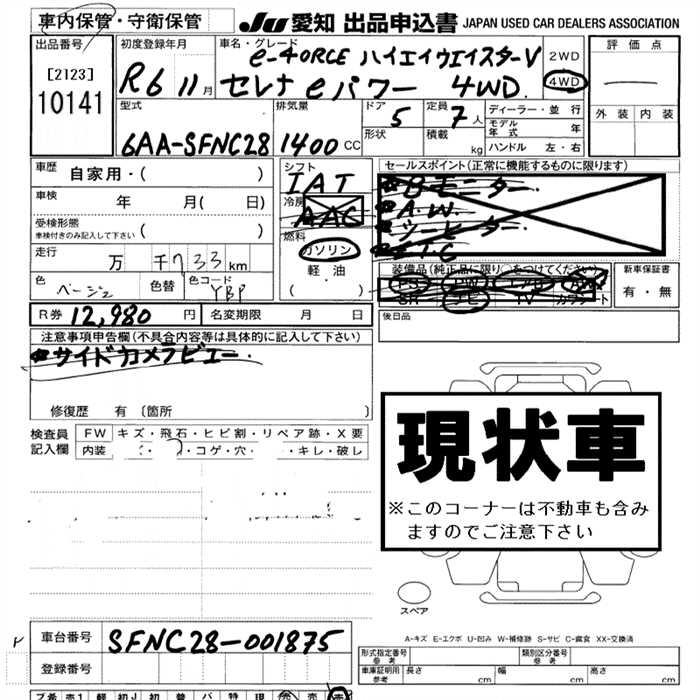 車内保管・守衛保管
JU 愛知 出品申込書 JAPAN USED CAR DEALERS ASSOCIATION
出品番号
[2123]
10141
初度登録年月
R6 11月
車名・グレード
e-4ORCE ハイエイウエイスターV
セレナeパワー 4WD
2WD
4WD
評価点
外装 内装
型式
6AA-SFNC28
排気量
1400 CC
ドア 5
形状
定員 7人
積載 kg
ディーラー・並行
モデル年式 年
ハンドル 左・右
車歴 自家用・( )
車検 年 月( 日)
受検形態
車検付きのみ記入して下さい ( )
走行 万 千733km
色 ベージュ 色替 色コード YBP
シフト
IAT
冷房
AAC
燃料
ガソリン
軽油
( )
セールスポイント(正常に機能するものに限ります)
Bモニター
A.W.
シーヒーター
ETC
装備品(純正品に限り○をつけてください)
PS PW
SR ナビ TV カワシート
新車保証書
有・無
R券 12,980円 名変期限 月 日
後日品
注意事項申告欄(不具合内容等は具体的に記入して下さい)
サイドカメラビュー
修復歴 有 〔箇所 〕
検査員記入欄
FW キズ・飛石・ヒビ割・リペア跡・X要
内装 コゲ・穴・ キレ・破レ
現状車
※このコーナーは不動車も含み
ますのでご注意下さい
スペア
A-キズ E-エクボ U-凹み W-補修跡 S-サビ C-腐食 XX-交換済
車台番号 SFNC28-001875
登録番号
形式指定番号 参考
類別区分番号 参考
車庫証明用 参考 長さ cm 幅 cm 高さ cm